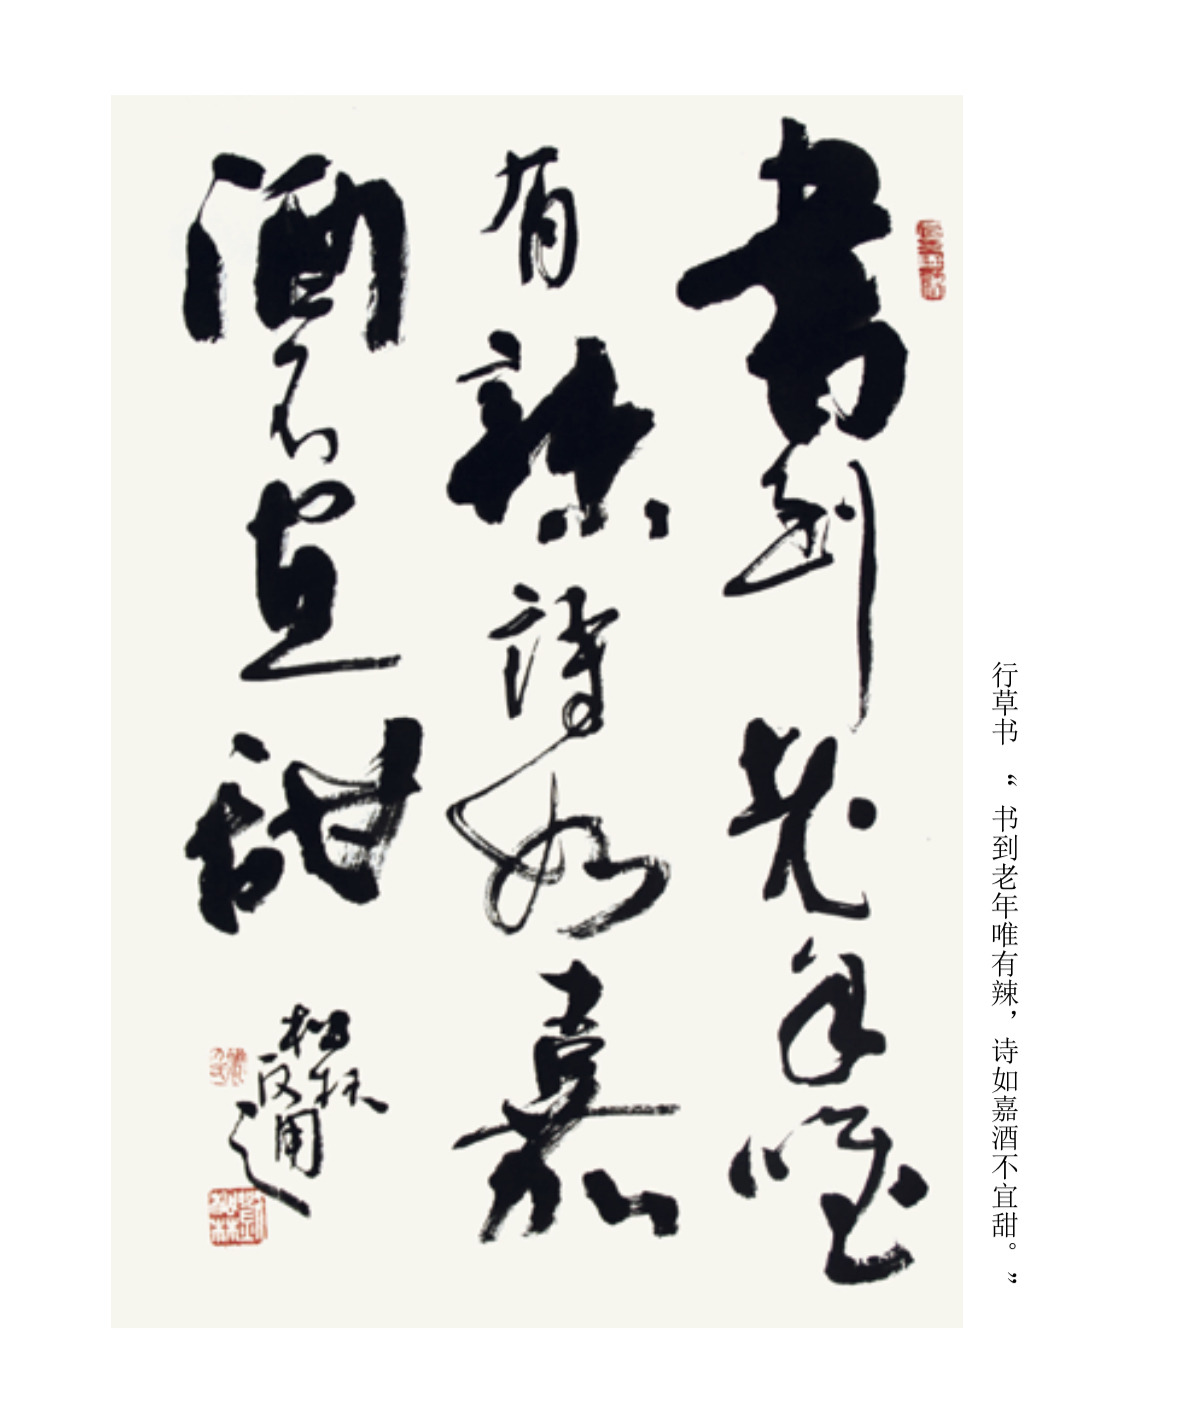 行草书 “书到老年唯有辣，诗如嘉酒不宜甜。”
書到老年唯
有辣詩如嘉
酒不宜甜
松林